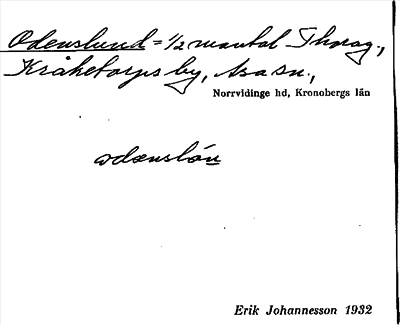 Odenslund = 1/2 mantal Thorag.,
Kråketorps by, Asa sn.,
Norrvidinge hd, Kronobergs län
odænslón
Erik Johannesson 1932